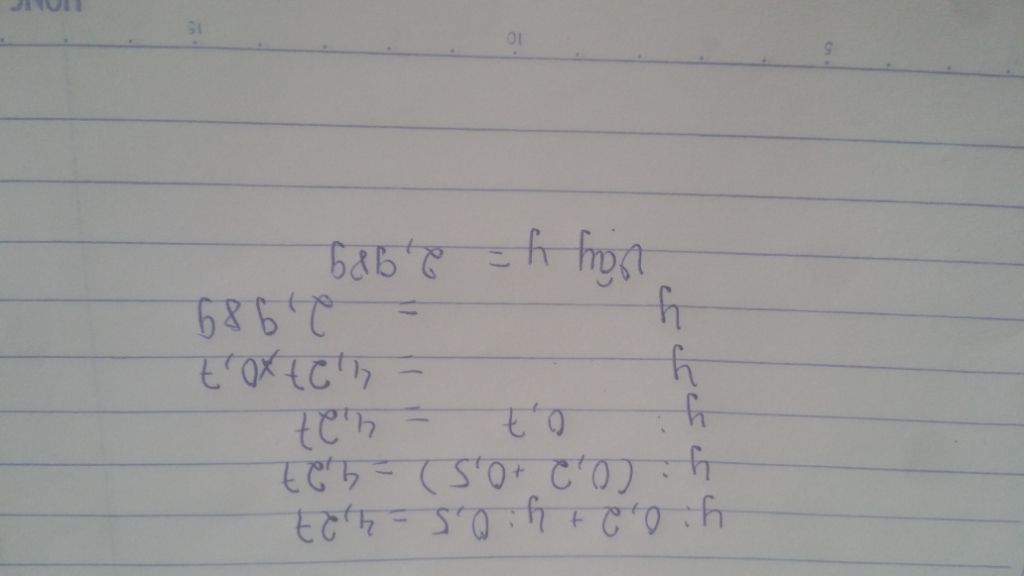 y : 0,2 + y : 0,5 = 4,27
y : (0,2 + 0,5) = 4,27
y : 0,7 = 4,27
y = 4,27 x 0,7
y = 2,989
Vậy y = 2,989
5 10 15